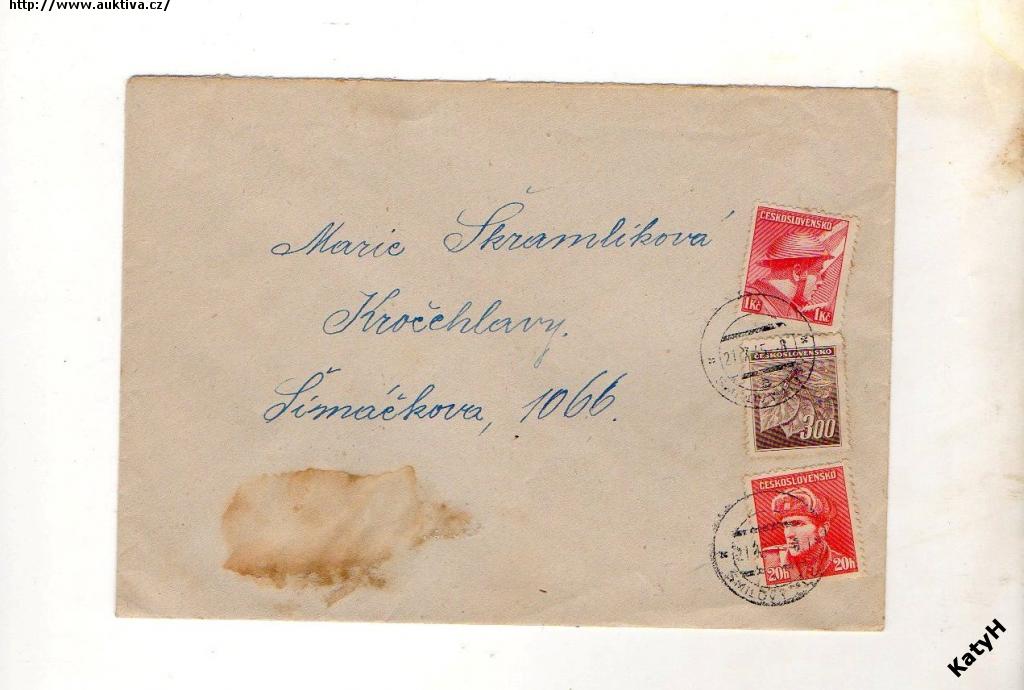 http://www.auktiva.cz/
Marie Škramlíková
Kročehlavy.
Šimáčkova, 1066.
ČESKOSLOVENSKO
1Kč 1Kč
ČESKOSLOVENSKO
300
ČESKOSLOVENSKO
20h 20h
KatyH